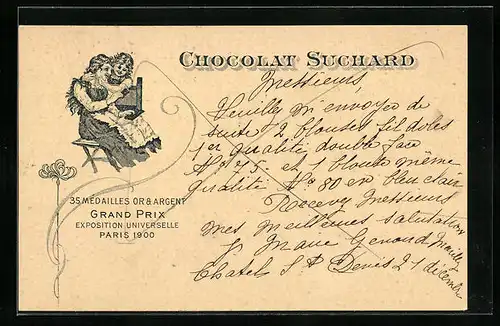 CHOCOLAT SUCHARD
35 MÉDAILLES OR & ARGENT
GRAND PRIX
EXPOSITION UNIVERSELLE
PARIS 1900
Messieurs,
Veuillez m'envoyer de
suite 2 blouses fil
1er qualité double face
No 75 et 1 blouse même
qualité No 80 en bleu clair
Recevez Messieurs
mes meilleures salutations
Marie Genoud
Chatel St Denis 21 décembre